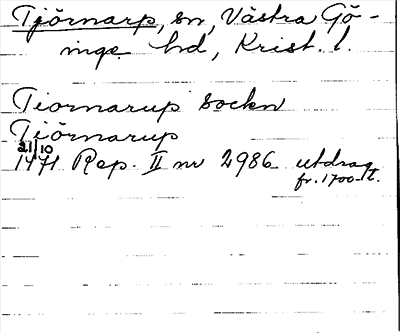 Tjörnarp, sn, Västra Gö-
inge hd, Krist. l.
Tiornarup Sockn
Tiörnarup
21/10
1471 Rep. II nr 2986 utdrag
fr. 1700-t.